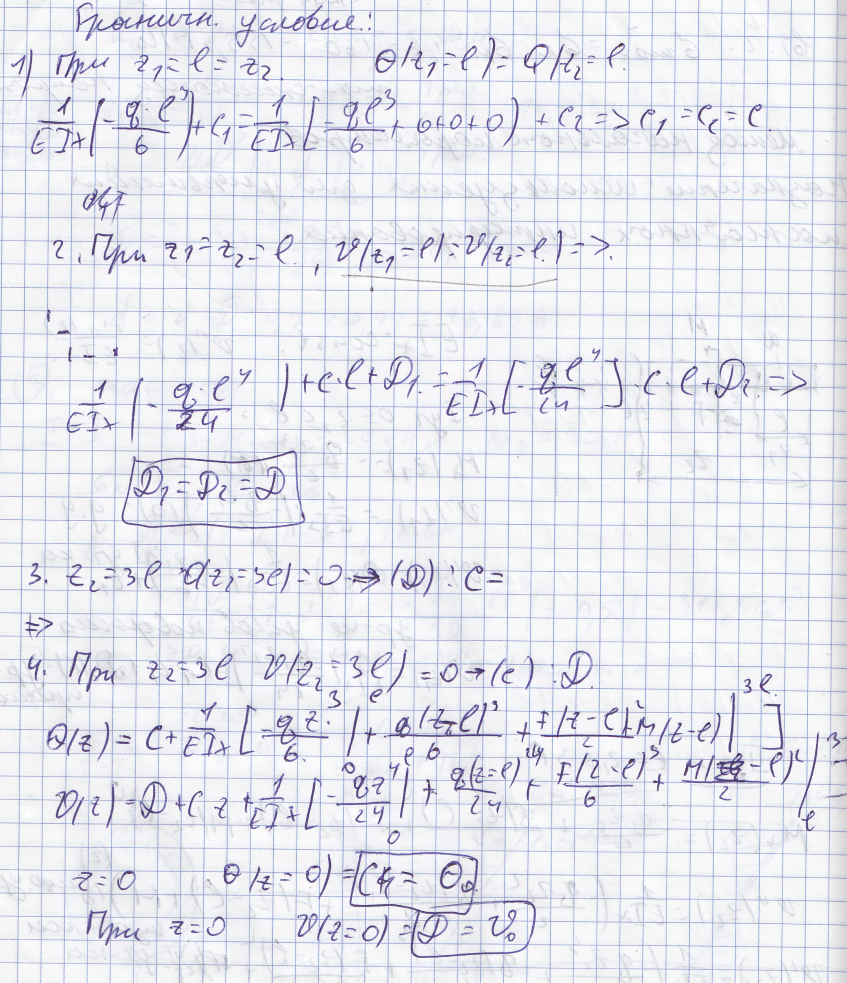 Граничн. условие:
1) При z₁=l=z₂. θ(z₁=l)=θ(z₂=l.
1/EIx(-q·l³/6)+C₁=1/EIx[-ql³/6+0+0+0)+C₂=>C₁=C₂=C.
2. При z₁=z₂=l., V(z₁=l)=V(z₂=l.)=>.
1/EIx(-q·l⁴/24)+C·l+D₁=1/EIx[-q·l⁴/24]·C·l+D₂=>
D₁=D₂=D
3. z₂=3l θ(z₂=3l)=0→(D):C=
=>
4. При z₂=3l V(z₂=3l)=0→(C):D.
θ(z)=C+1/EIx[-qz³/6|₀ˡ+q(z-l)³/6+F(z-l)²/2+M(z-l)|3l]
V(z)=D+Cz+1/EIx[-qz⁴/24|₀+q(z-l)⁴/24+F(z-l)³/6+M(z-l)²/2|ₗ3
z=0 θ(z=0)=C=θ₀
При z=0 V(z=0)=D=V₀